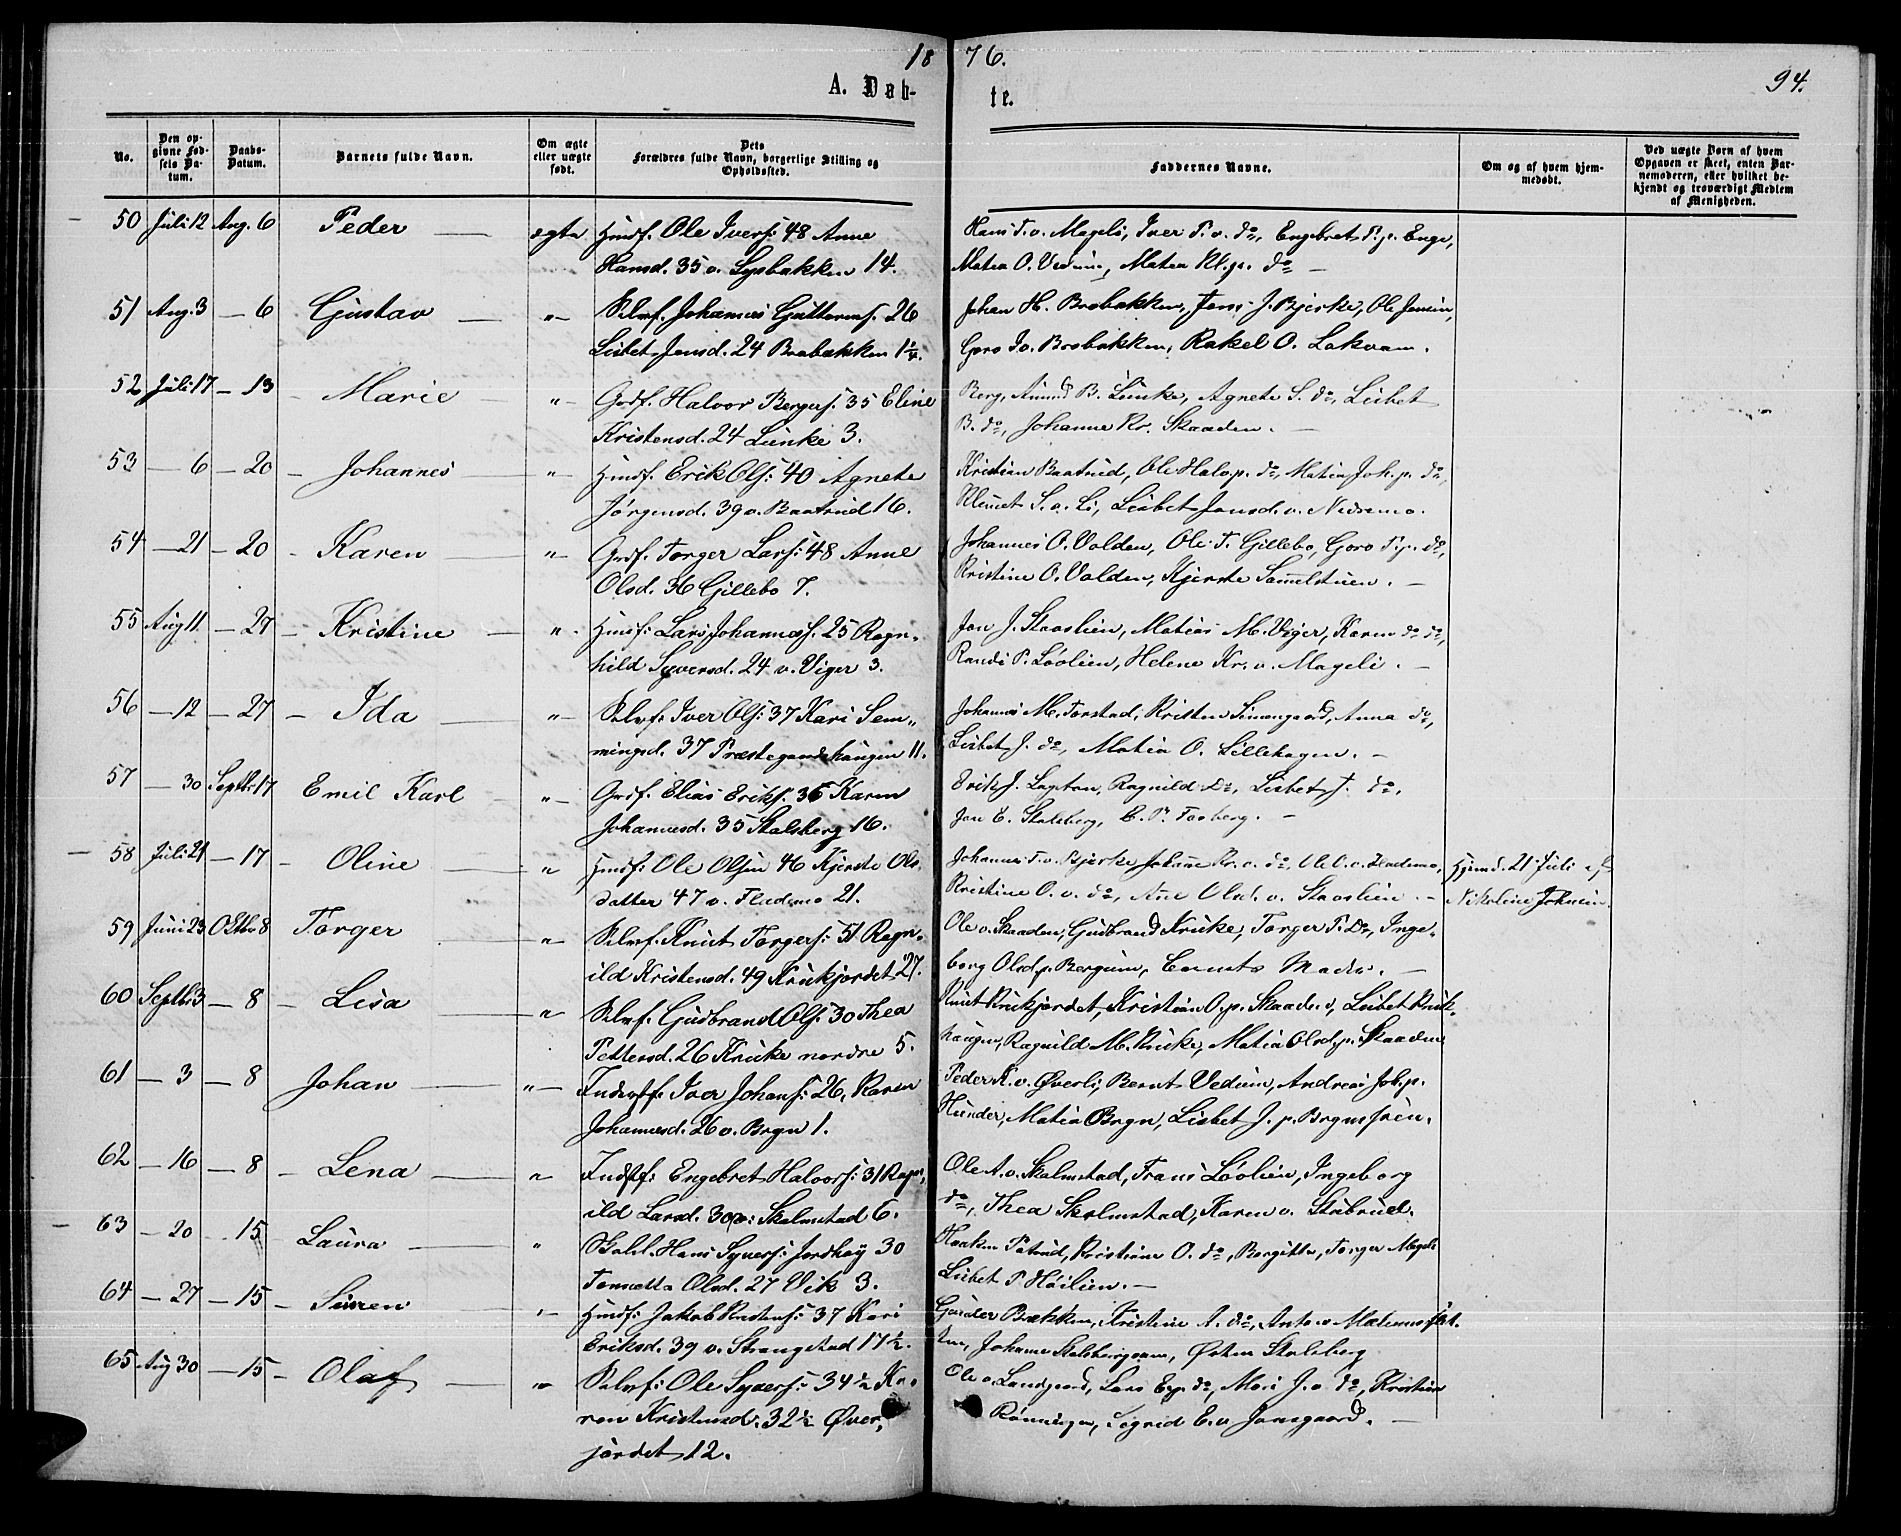 1876.
94.
A. Døbte.
No. | Den opgivne Fødsels Datum. | Daabs-Datum. | Barnets fulde Navn. | Om ægte eller uægte født. | Dets Forældres fulde Navn, borgerlige Stilling og Opholdssted. | Faddernes Navne. | Om og af hvem hjemmedøbt. | Ved uægte Børn af hvem Opgaven er skeet, enten Barnemoderen, eller hvilket bekjendt og troværdigt Medlem af Menigheden.
50 Juli 12 Aug. 6 Peder — ægte Huusf. Ole Ivers: 48 Anne
Hansd. 35 v. Lysbakken 14.
Hans T. v. Mageli, Iver P. v. do, Engebret P. p. Enge,
Matea O. Vedum, Matea Kl. p. do —
51 Aug. 3 — 6 Gustav — "— Selvf. Johannes Guttorms. 26
Lisbet Jensd. 24 Brobakken 1¼.
Johan H. Brobakken, Jens J. Bjerke, Ole Jensen,
Goro Jo. Brobakken, Rakel O. Lokvam.
52 Juli 17 — 13 — Marie — "— Grdf. Halvor Bergers. 35 Eline
Kristensd. 24 Lunke 3.
Berg, Amund B. Lunke, Agnete S. do, Lisbet
B. do, Johanne Kr. Skaaden. —
53 — 6 — 20 — Johannes — "— Huusf. Erik Ols: 40 Agnete
Jørgensd. 39 v. Baatrud 16.
Kristian Baatrud, Ole Halv. p. do, Matea Joh. p. do,
Klemet S. v. Li, Lisbet Jensd. v. Nedremo.
54 — 21 — 20 — Karen — "— Grdf. Torger Lars: 48 Anne
Olsd. 36 Gillebo 7.
Johannes O. Volden, Ole T. Gillebo, Goro T. p. do,
Kristine O. Volden, Kjerste Sammelstuen. —
55 Aug 11 — 27 — Kristine — "— Huusf: Lars Johanness. 25 Ragn-
hild Syversd. 24 v. Viger 3.
Jon J. Staaslien, Matias M. Viger, Karen do do,
Randi P. Løolien, Helene Kr. v. Mageli. —
56 — 12 — 27 — Ida — "— Selvf: Iver Ols: 37 Kari Sem-
mingsd. 37 Præstegaardshaugen 11.
Johannes M. Forstad, Kristen Simengaard, Anna do,
Lisbet J. do, Matia O. Lillehagen. —
57 — 30 Septbr 17 Emil Karl — "— Grdf. Elias Eriks. 36 Karen
Johannesd. 35 Stalsberg 16.
Erik J. Lapton, Ragnild do, Lisbet J. do,
Jon E. Stalsberg, C. P. Faaberg. —
58 Juli 21 — 17 — Oline — "— Huusf: Ole Olsen 46 Kjerste Ols-
datter 47 v. Flademo 21.
Johannes T. v. Bjerke, Johanne Kr. v. do, Ole O. v. Flademo,
Kristine O. v. do, Ane Olsd. v. Staaslien. —
Hjemd. 21 Juli af
Nikoline Johnsen.
59 Juni 23 Oktbr 8 Torger "— Selvf. Knut Torgers: 51 Ragn-
ild Kristensd. 49 Krukjordet 27.
Ole v. Skaaden, Gudbrand Kruke, Torger T. do, Inge-
borg Olsd. p. Bergum, Barnets Moder. —
60 Septbr 3 — 8 — Lisa — "— Selvf. Gudbrand Ols: 30 Thea
Pettersd. 26 Kruke nordre 5.
Knut Krukjordet, Kristian O. p. Skaaden, Lisbet Kruk-
haugen, Ragnild M. Kruke, Matia Olsd. p. Skaaden
61 — 3 — 8 Johan — "— Inderstf. Iver Johans: 26, Karen
Johannesd. 26 v. Bryn 1.
Peder K. v. Øverli, Bernt Vedum, Andreas Joh. p.
Hunder, Matia Bryn, Lisbet J. p. Brynsstuen.
62 — 16 — 8 — Lena — "— Indstf: Engebret Halvors: 31 Ragn-
ild Larsd. 30 p: Skalmstad 6.
Ole A. v. Skalmstad, Frans Løolien, Ingeborg
do, Thea Skalmstad, Karen v. Stubrud.
63 — 20 — 15 Laura — " Hans Syvers: Jordhøy 30
Tonnetta Olsd. 27 Vik 3.
Haaken Fatrud, Kristiane O. do, Borgitte, Torger Mageli
Lisbet P. Høilien. —
64 — 27 — 15 — Simen — "— Huusf: Jakob Kristens: 37 Kari
Eriksd. 39 v. Strangstad 17½.
Gunder Bækken, Kristine A. do, Anto. v. Mælumsst.
Johanne Stalsbergsveen, Østen Stalsberg
65 Aug 30 — 15 — Olaf — "— Selvf: Ole Syvers: 34½ Ka-
ren Kristensd. 32½ Øver-
jordet 12.
Ole v. Landgaard, Lars Ey. do, Mari J. v. do, Kristian
Rønningen, Sigrid E. v. Jonsgaard. —